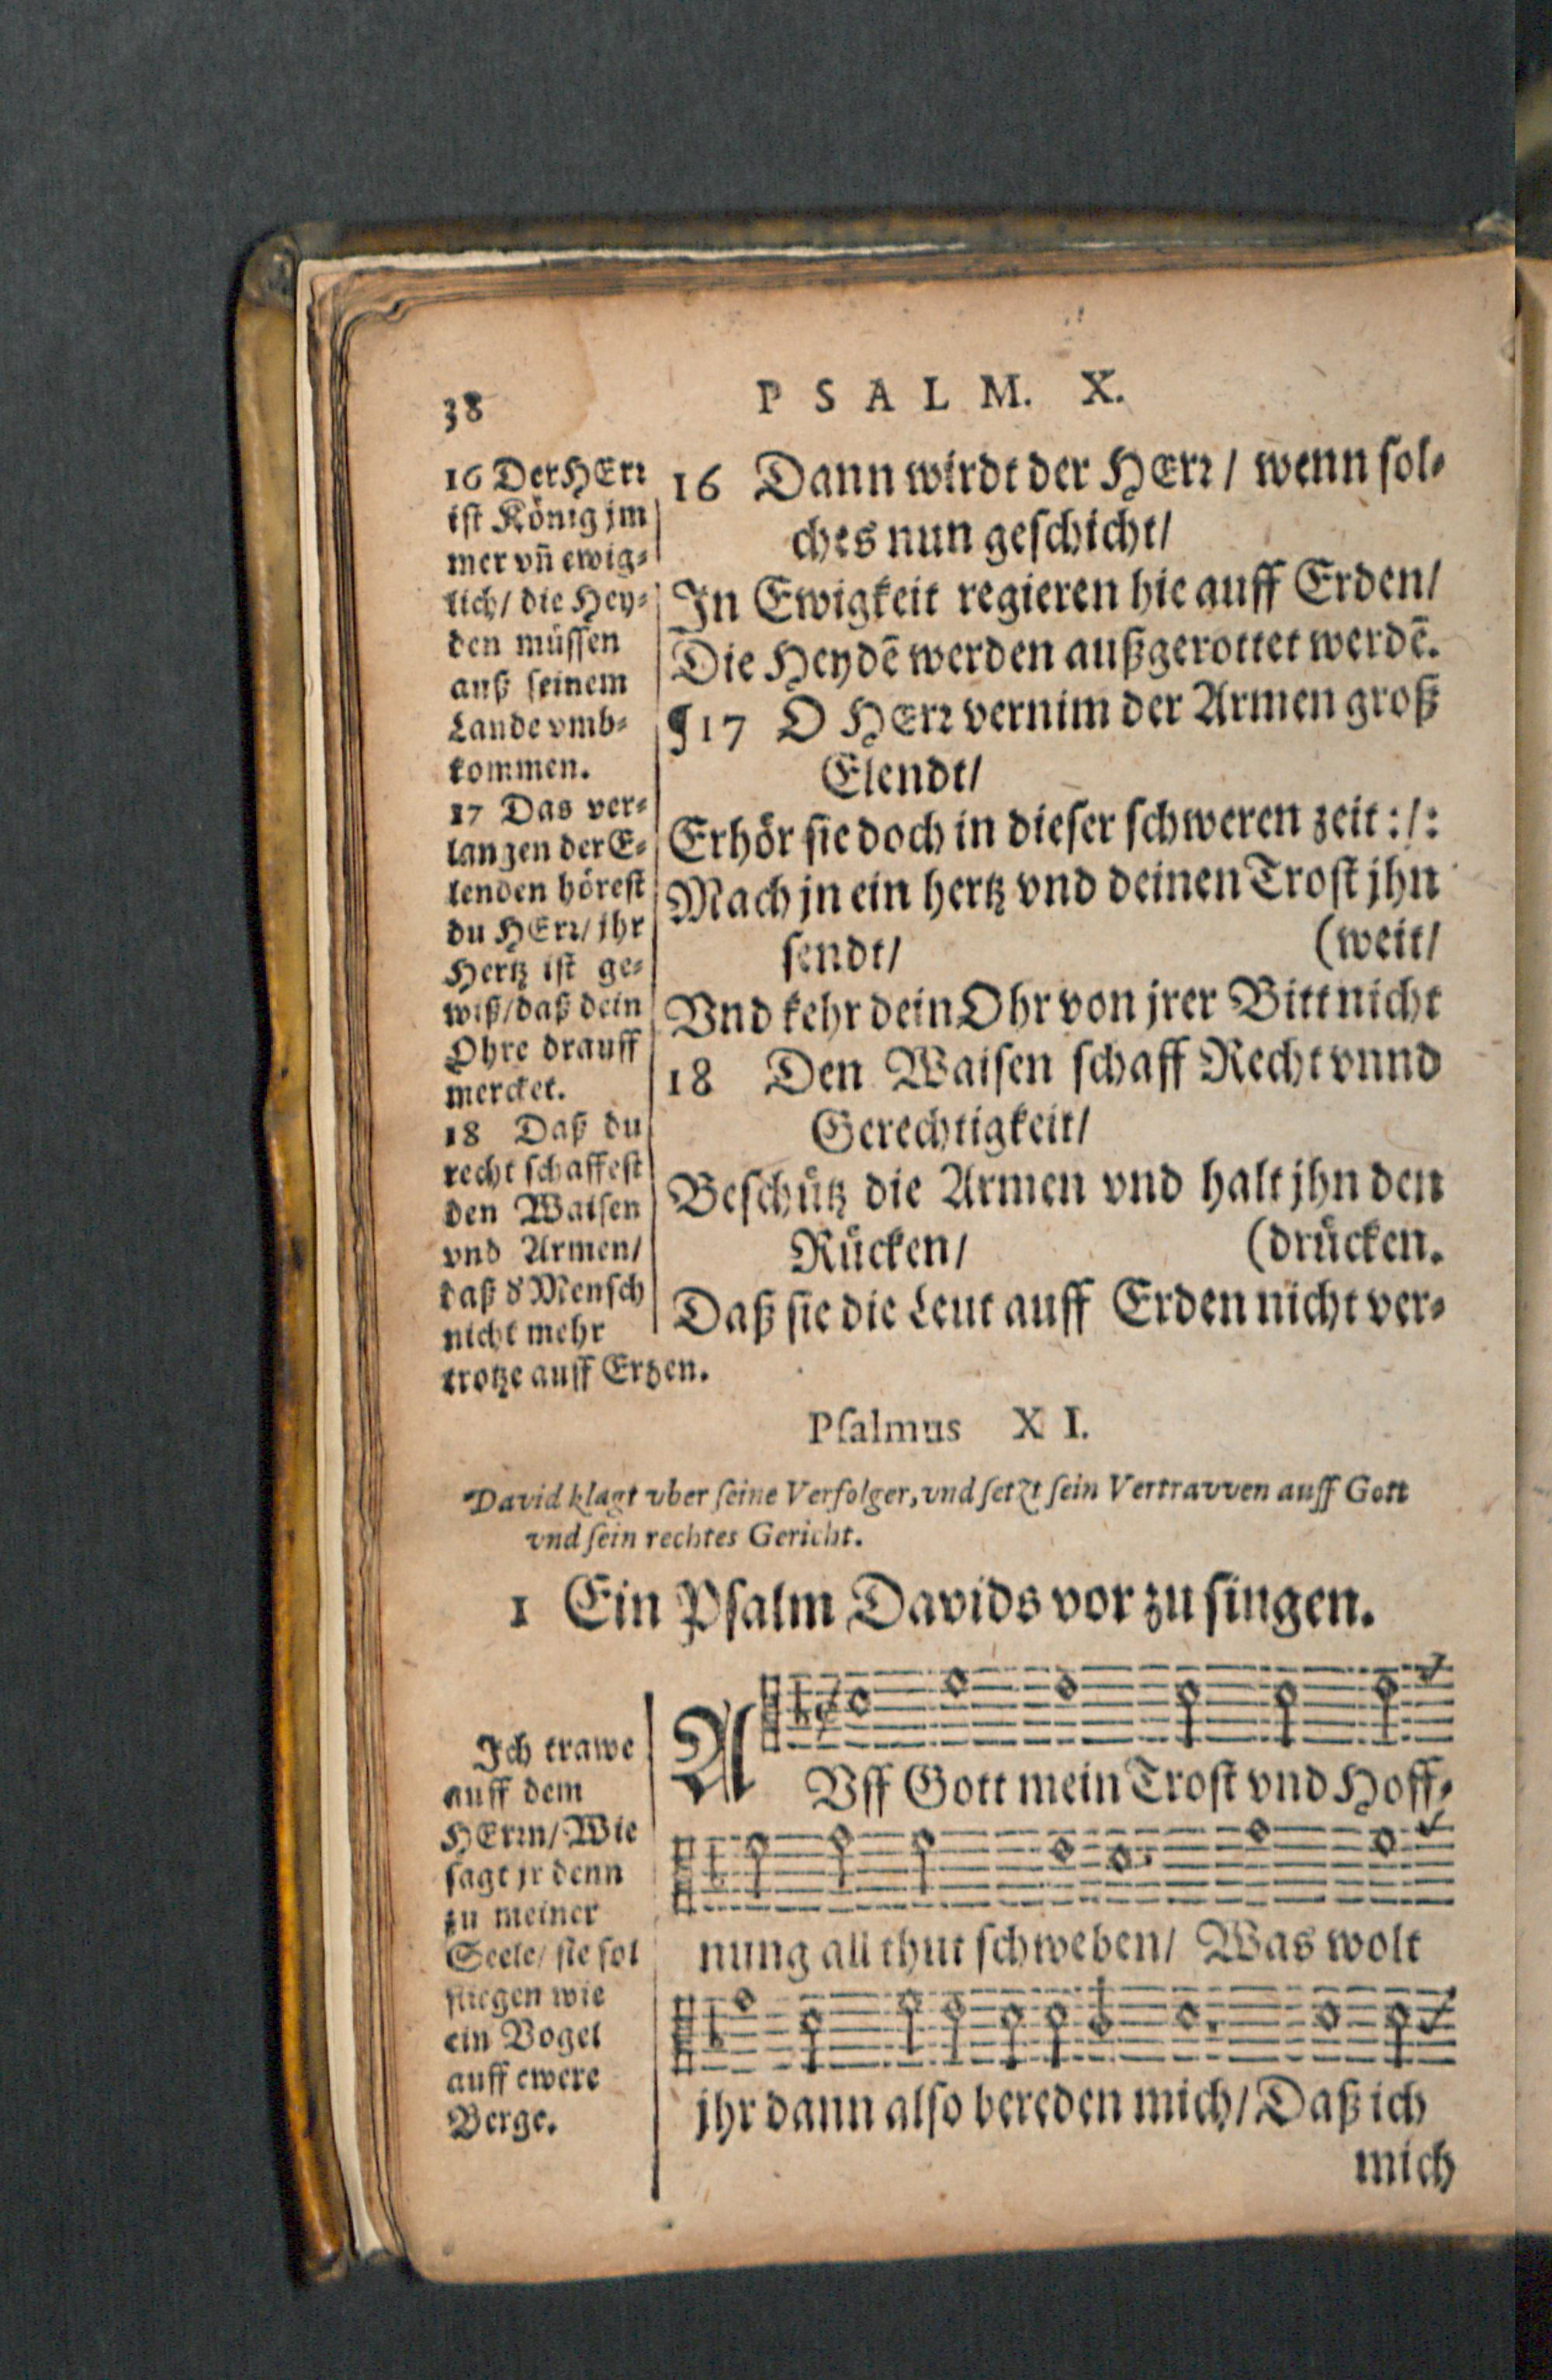 38
PSALM. X.
16 Der HErr
ist König jm
mer vñ ewig=
lich/ die Hey=
den müssen
auß seinem
Lande vmb=
kommen.
17 Das ver=
langen der E=
lenden hörest
du HErr/ jhr
Hertz ist ge=
wiß/ daß dein
Ohre drauff
mercket.
18 Daß du
recht schaffest
den Waisen
vnd Armen/
daß d' Mensch
nicht mehr
trotze auff Erden.
16 Dann wirdt der HErr / wenn sol=
ches nun geschicht/
In Ewigkeit regieren hie auff Erden/
Die Heydē werden außgerottet werdē.
¶17 O HErr vernim der Armen groß
Elendt/
Erhör sie doch in dieser schweren zeit :/:
Mach jn ein hertz vnd deinen Trost jhn
sendt/ (weit/
Vnd kehr dein Ohr von jrer Bitt nicht
18 Den Waisen schaff Recht vnnd
Gerechtigkeit/
Beschütz die Armen vnd halt jhn den
Rücken/ (drücken.
Daß sie die Leut auff Erden nicht ver=
Psalmus XI.
David klagt vber seine Verfolger, vnd setzt sein Vertravven auff Gott
vnd sein rechtes Gericht.
1 Ein Psalm Davids vor zu singen.
Ich trawe
auff dem
HErrn/ Wie
sagt jr denn
zu meiner
Seele/ sie sol
fliegen wie
ein Vogel
auff ewere
Berge.
AVff Gott mein Trost vnd Hoff=
nung all thut schweben/ Was wolt
jhr dann also bereden mich/ Daß ich
mich